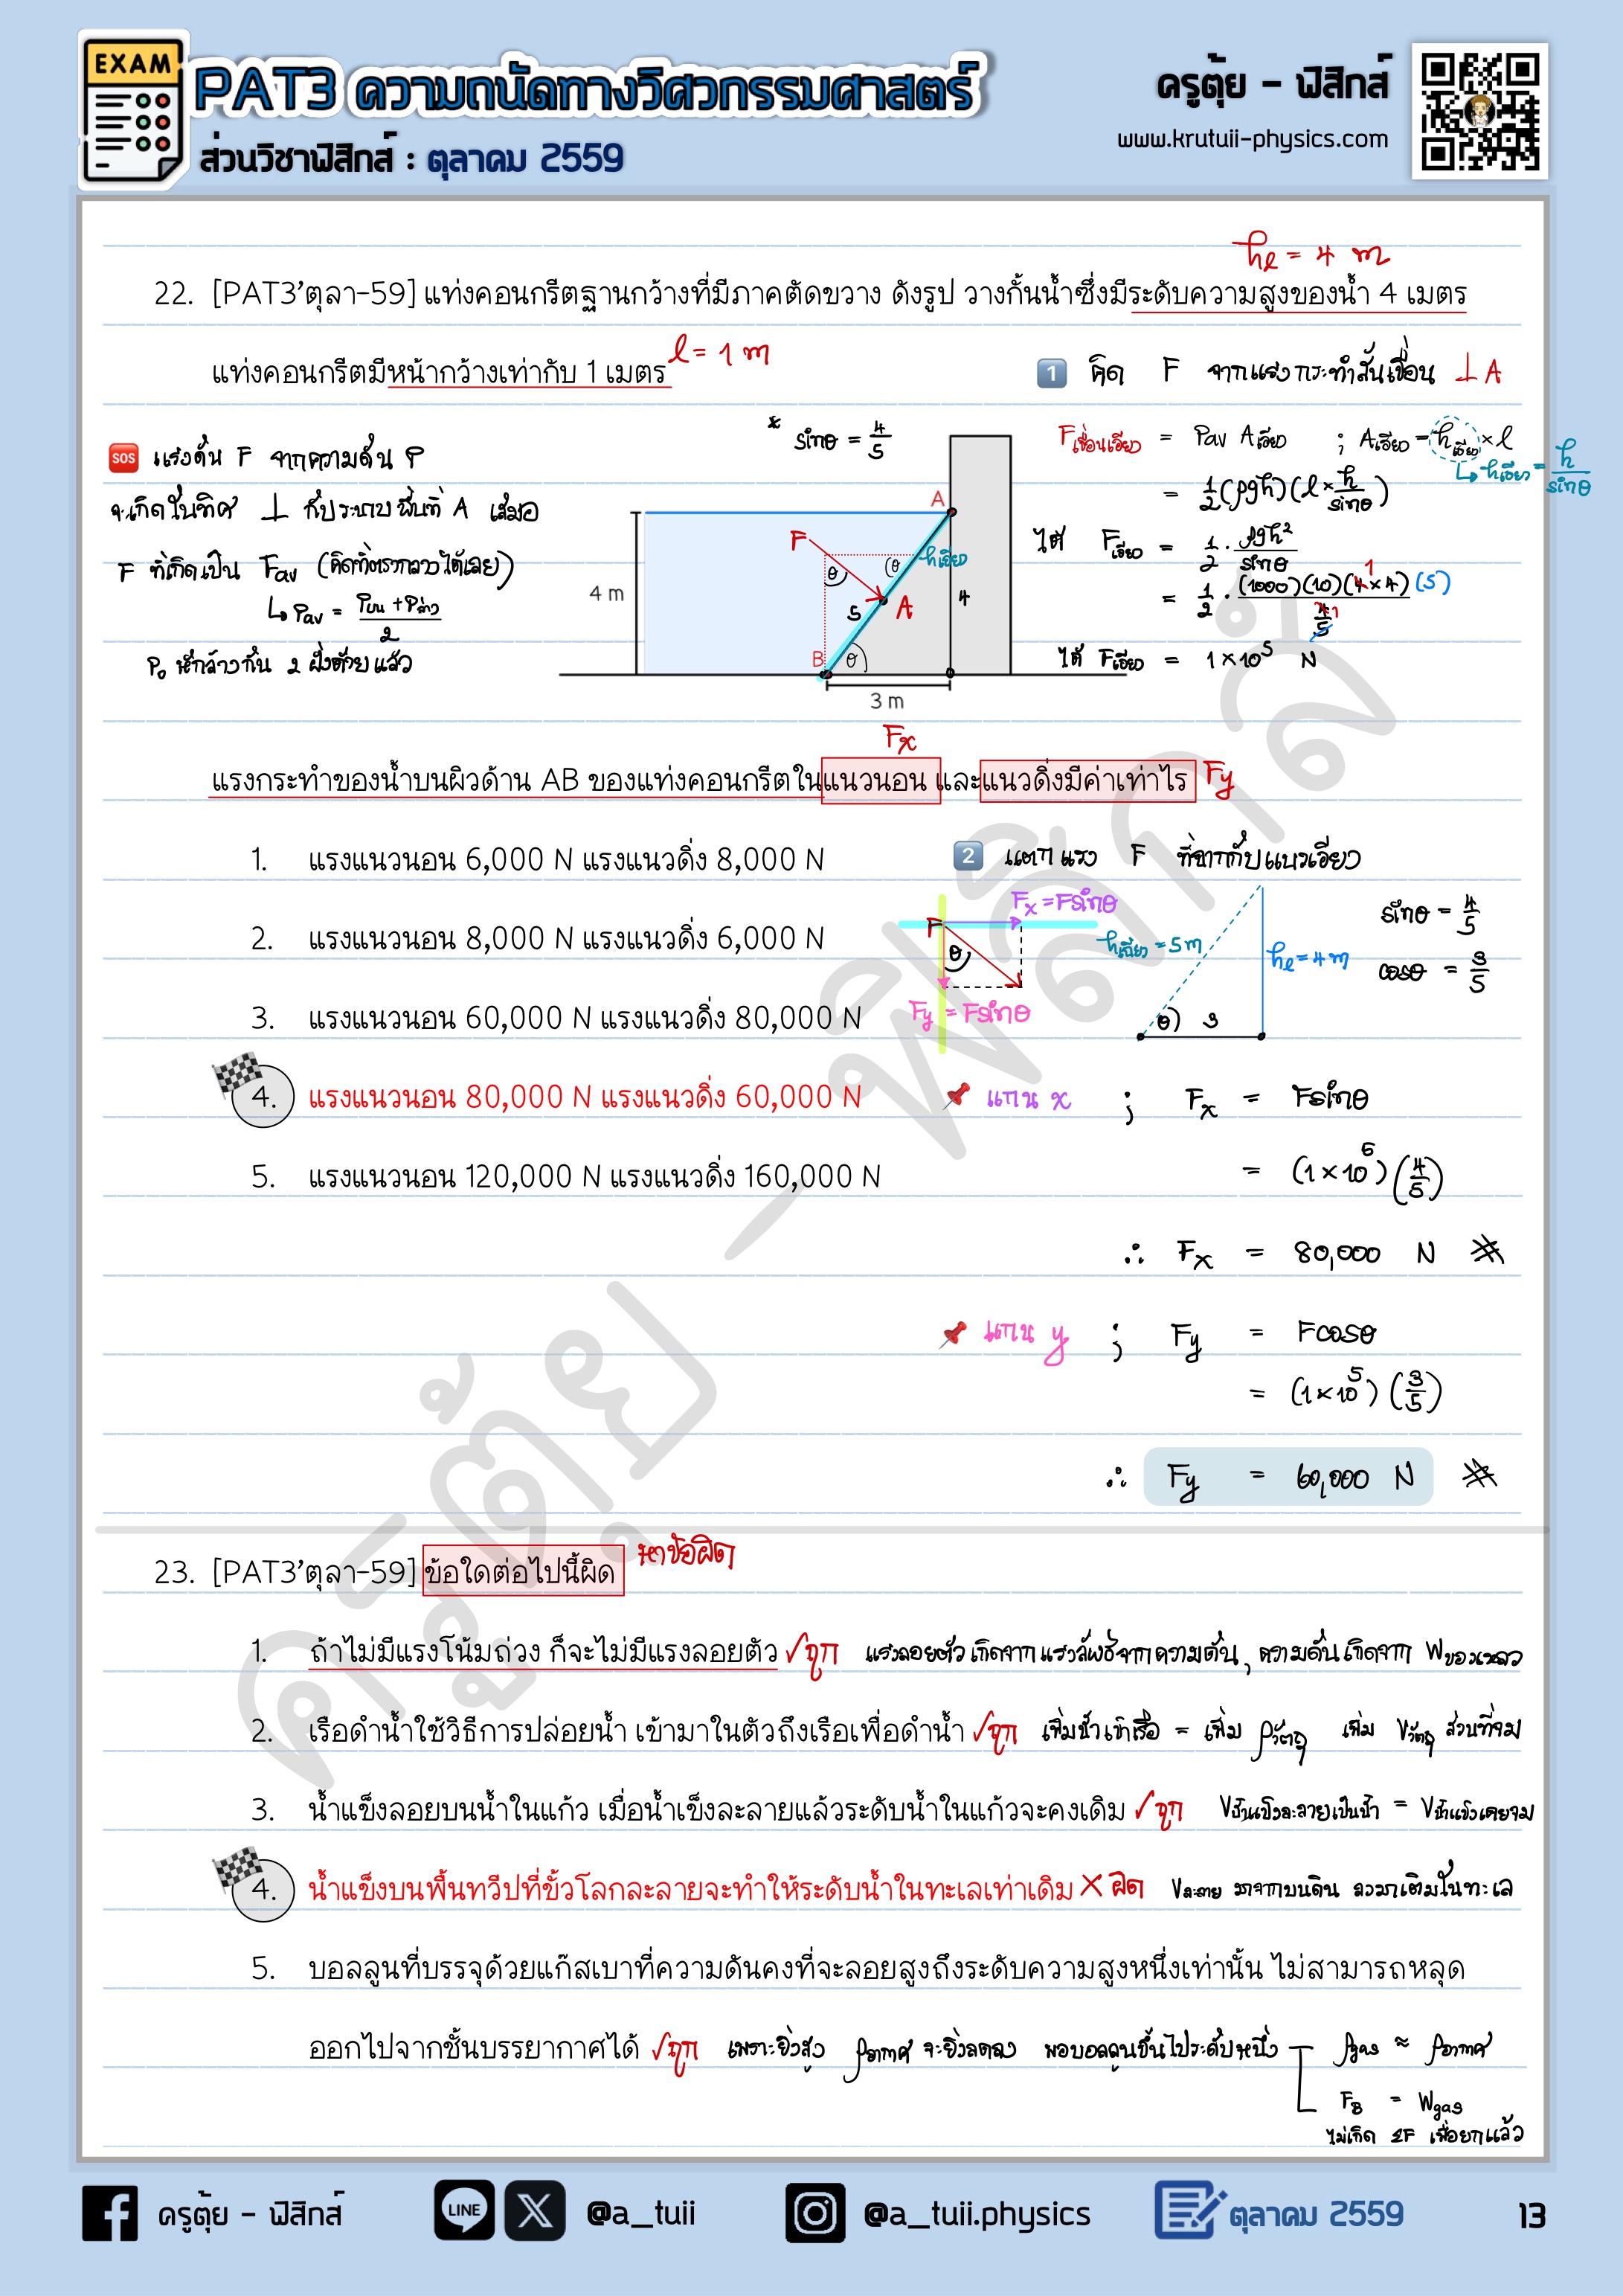 EXAM
PAT3 ความถนัดทางวิศวกรรมศาสตร์
ส่วนวิชาฟิสิกส์ : ตุลาคม 2559
ครูตุ้ย - ฟิสิกส์
www.krutuii-physics.com
h_l = 4 m
22. [PAT3'ตุลา-59] แท่งคอนกรีตฐานกว้างที่มีภาคตัดขวาง ดังรูป วางกั้นน้ำซึ่งมีระดับความสูงของน้ำ 4 เมตร
แท่งคอนกรีตมีหน้ากว้างเท่ากับ 1 เมตร l = 1 m
SOS แรงดัน F จากความดัน P
จะเกิดในทิศ ⊥ กับระนาบพื้นที่ A เสมอ
F ที่เกิดเป็น F_av (คิดที่ตรงกลางได้เลย)
↳ P_av = (P_บน + P_ล่าง)/2
P_0 หักล้างกัน 2 ฝั่งด้วยแล้ว
* sinθ = 4/5
A
F
θ
θ
h_เอียง
4 m
5
A
4
B
θ
3 m
1 คิด F จากแรงกระทำสันเขื่อน ⊥ A
F_เขื่อนเอียง = P_av A_เอียง ; A_เอียง = h_เอียง × l
↳ h_เอียง = h/sinθ
= 1/2 (ρgh)(l × h/sinθ)
ได้ F_เอียง = 1/2 · ρgh²/sinθ
= 1/2 · (1000)(10)(4×4)(5) / 4/5
ได้ F_เอียง = 1×10⁵ N
F_x
แรงกระทำของน้ำบนผิวด้าน AB ของแท่งคอนกรีตในแนวนอน และแนวดิ่งมีค่าเท่าไร F_y
1. แรงแนวนอน 6,000 N แรงแนวดิ่ง 8,000 N
2. แรงแนวนอน 8,000 N แรงแนวดิ่ง 6,000 N
3. แรงแนวนอน 60,000 N แรงแนวดิ่ง 80,000 N
4. แรงแนวนอน 80,000 N แรงแนวดิ่ง 60,000 N
5. แรงแนวนอน 120,000 N แรงแนวดิ่ง 160,000 N
2 แตกแรง F ที่ฉากกับแนวเอียง
F_x = Fsinθ
F
θ
F_y = Fsinθ
h_เอียง = 5 m
h_l = 4 m
θ 3
sinθ = 4/5
cosθ = 3/5
แกน x ; F_x = Fsinθ
= (1×10⁵)(4/5)
∴ F_x = 80,000 N
แกน y ; F_y = Fcosθ
= (1×10⁵)(3/5)
∴ F_y = 60,000 N
23. [PAT3'ตุลา-59] ข้อใดต่อไปนี้ผิด หาข้อผิด
1. ถ้าไม่มีแรงโน้มถ่วง ก็จะไม่มีแรงลอยตัว ✓ถูก แรงลอยตัวเกิดจากแรงลัพธ์จากความดัน, ความดันเกิดจาก W_ของเหลว
2. เรือดำน้ำใช้วิธีการปล่อยน้ำ เข้ามาในตัวถึงเรือเพื่อดำน้ำ ✓ถูก เพิ่มน้ำเข้าเรือ = เพิ่ม ρ_วัตถุ เพิ่ม V_วัตถุ ส่วนที่จม
3. น้ำแข็งลอยบนน้ำในแก้ว เมื่อน้ำเข็งละลายแล้วระดับน้ำในแก้วจะคงเดิม ✓ถูก V_น้ำแข็งละลายเป็นน้ำ = V_น้ำแข็งเคยจม
4. น้ำแข็งบนพื้นทวีปที่ขั้วโลกละลายจะทำให้ระดับน้ำในทะเลเท่าเดิม ✗ ผิด V_ละลาย มาจากบนดิน ลงมาเติมในทะเล
5. บอลลูนที่บรรจุด้วยแก๊สเบาที่ความดันคงที่จะลอยสูงถึงระดับความสูงหนึ่งเท่านั้น ไม่สามารถหลุด
ออกไปจากชั้นบรรยากาศได้ ✓ถูก เพราะยิ่งสูง ρ_อากาศ จะยิ่งลดลง พอบอลลูนขึ้นไประดับหนึ่ง ρ_gas ≈ ρ_อากาศ
F_B = W_gas
ไม่เกิด ΣF เพื่อยกแล้ว
ครูตุ้ย - ฟิสิกส์
ครูตุ้ย - ฟิสิกส์
LINE
@a_tuii
@a_tuii.physics
ตุลาคม 2559
13